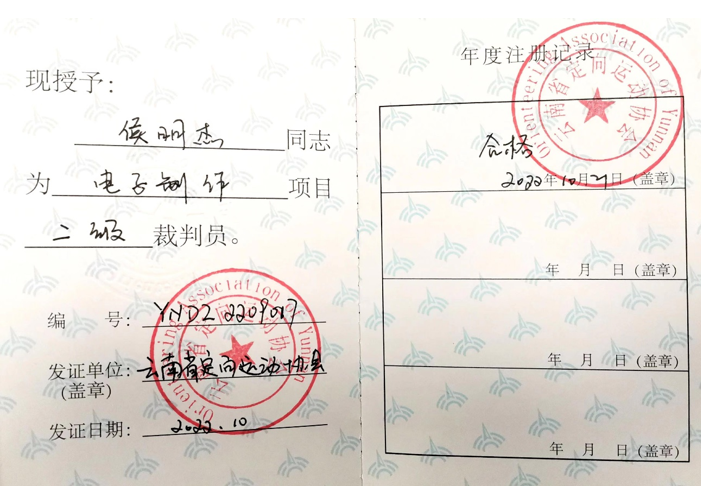 现授予:
侯明杰同志
为 电子制作 项目
二级 裁判员。
编 号: YNDZ 2209017
发证单位: 云南省定向运动协会
(盖章)
发证日期: 2022.10
Orienteering Association of Yunnan
云南省定向运动协会
年度注册记录
Orienteering Association of Yunnan
云南省定向运动协会
合格
2022年10月21日(盖章)
年 月 日(盖章)
年 月 日(盖章)
年 月 日(盖章)